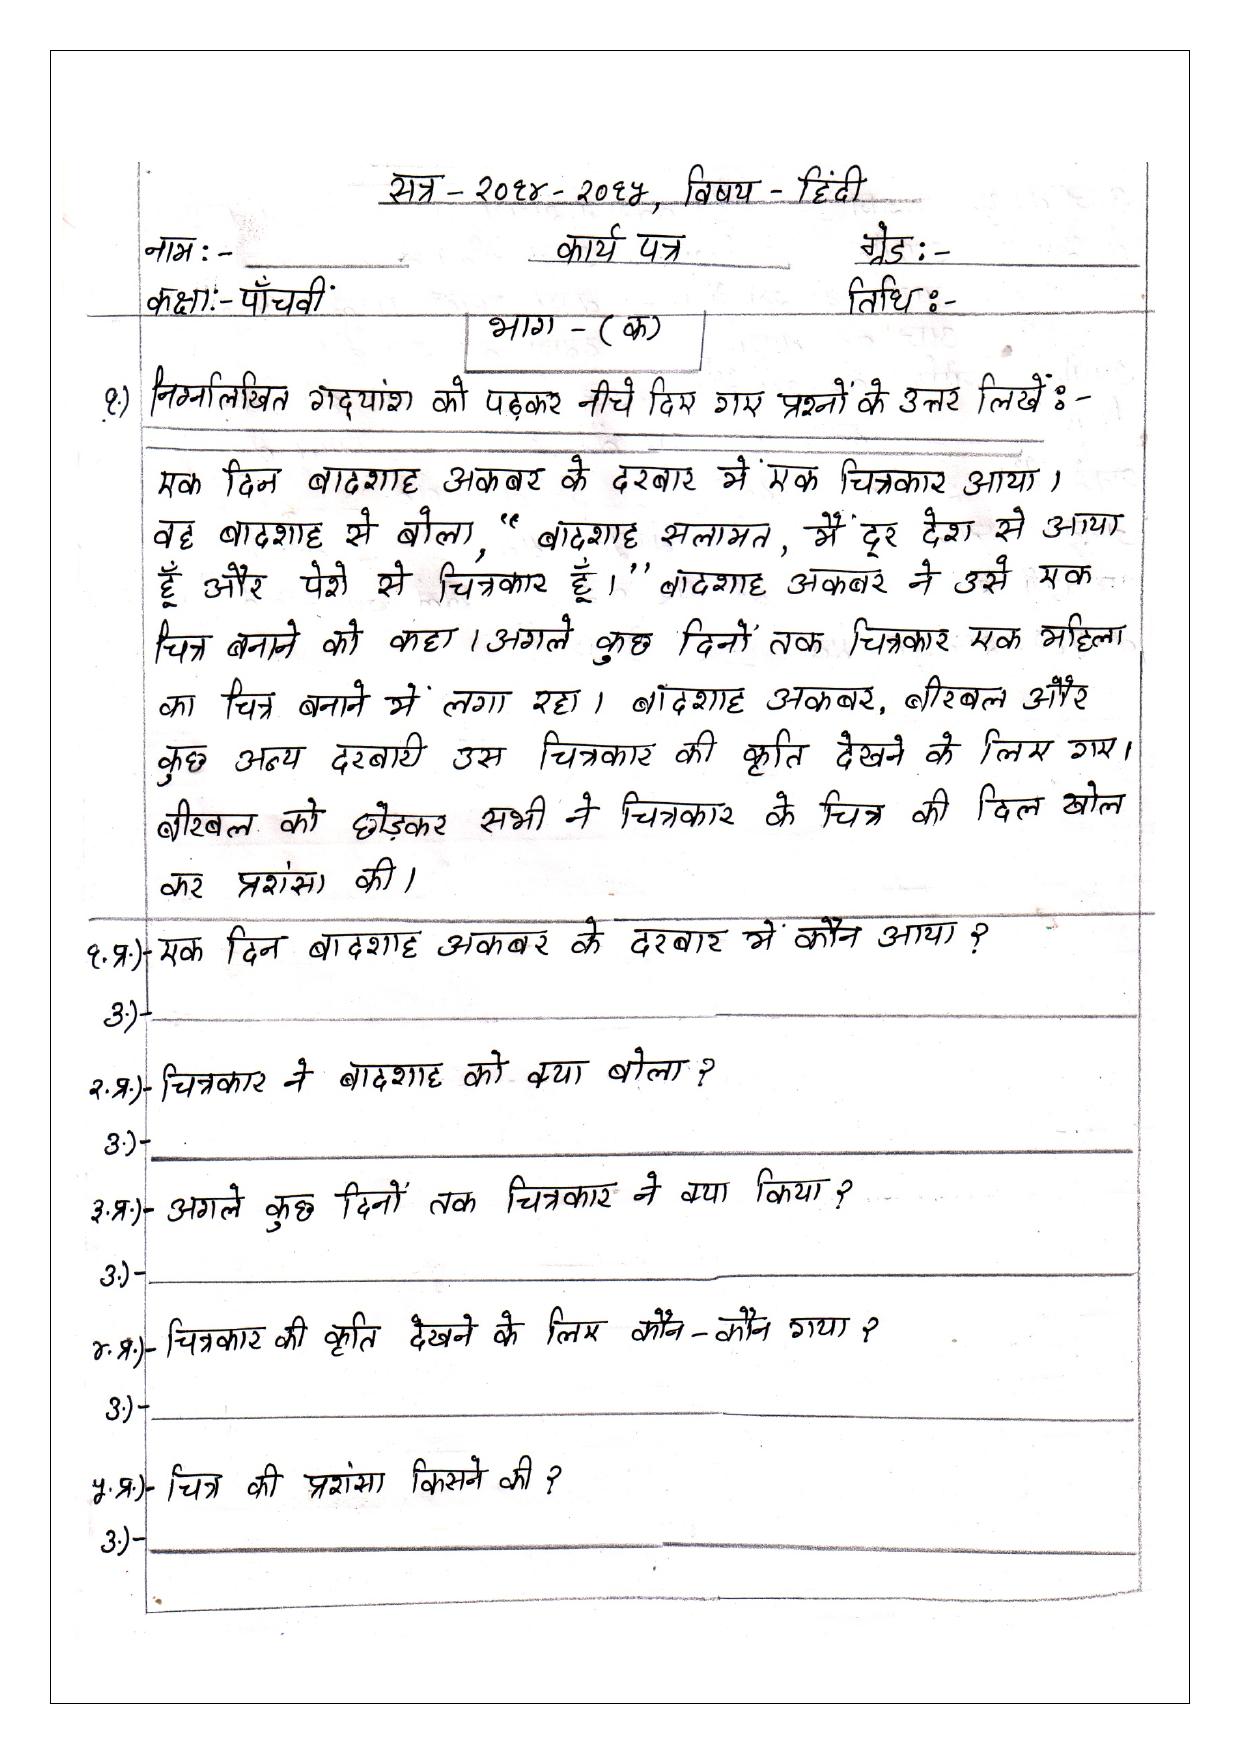 सत्र - २०१४ - २०१५, विषय - हिंदी
नाम :- कार्य पत्र ग्रेड :-
कक्षा:- पाँचवीं तिथि :-
भाग - (क)
१.) निम्नलिखित गद्यांश को पढ़कर नीचे दिए गए प्रश्नों के उत्तर लिखें :-
एक दिन बादशाह अकबर के दरबार में एक चित्रकार आया।
वह बादशाह से बोला, “ बादशाह सलामत, मैं दूर देश से आया
हूँ और पेशे से चित्रकार हूँ।” बादशाह अकबर ने उसे एक
चित्र बनाने को कहा। अगले कुछ दिनों तक चित्रकार एक महिला
का चित्र बनाने में लगा रहा। बादशाह अकबर, बीरबल और
कुछ अन्य दरबारी उस चित्रकार की कृति देखने के लिए गए।
बीरबल को छोड़कर सभी ने चित्रकार के चित्र की दिल खोल
कर प्रशंसा की।
१.प्र.)- एक दिन बादशाह अकबर के दरबार में कौन आया ?
उ.)-
२.प्र.)- चित्रकार ने बादशाह को क्या बोला ?
उ.)-
३.प्र.)- अगले कुछ दिनों तक चित्रकार ने क्या किया ?
उ.)-
४.प्र.)- चित्रकार की कृति देखने के लिए कौन - कौन गया ?
उ.)-
५.प्र.)- चित्र की प्रशंसा किसने की ?
उ.)-